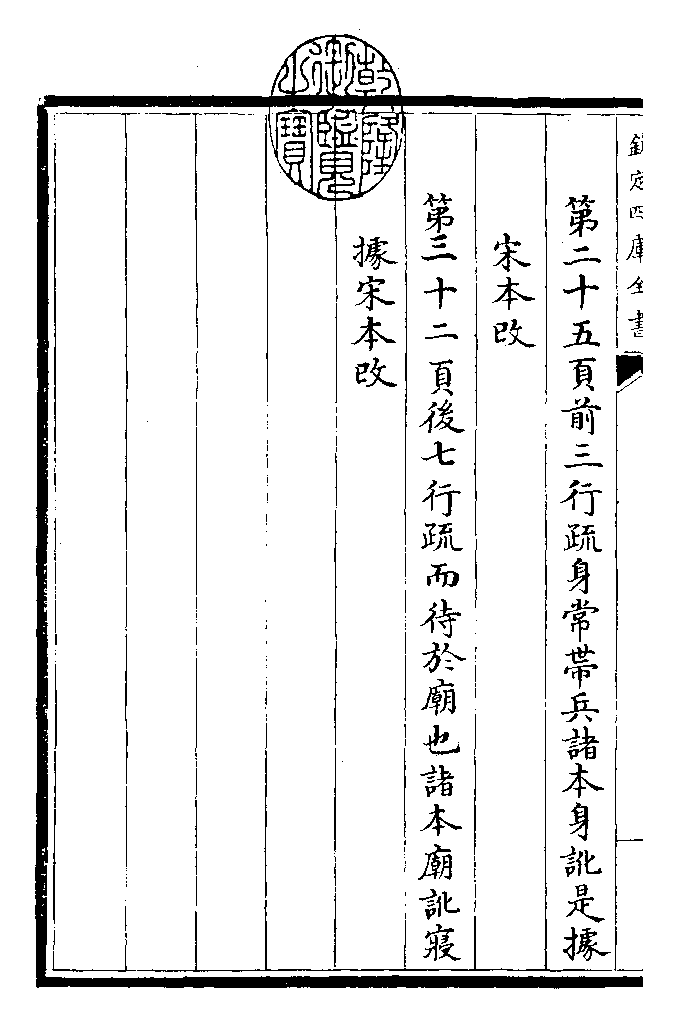 欽定四庫全書
第二十五頁前三行疏身常帶兵諸本身訛是據
宋本改
第三十二頁後七行疏而待於廟也諸本廟訛寢
據宋本改
乾隆御覽之寶